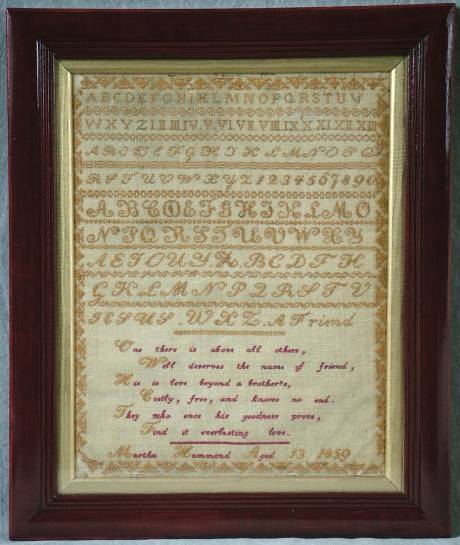 ABCDEFGHIKLMNOPQRSTUV
WXYZ I II III IV V VI VII VIII IX X XI XII XIII
ABCDEFGHIKLMNOPQ
RSTUVWXYZ1234567890
ABCDEFGHIKLMO
NPQRSTUVWXY
AEIOUYZ.BCDFH
GKLMNPQRSTV
JESUS WXZ.A Friend
One there is above all others,
Well deserves the name of friend,
His is love beyond a brother's,
Costly, free, and knows no end.
They who once his goodness prove,
Find it everlasting love.
Martha Hammond Aged 13 1859